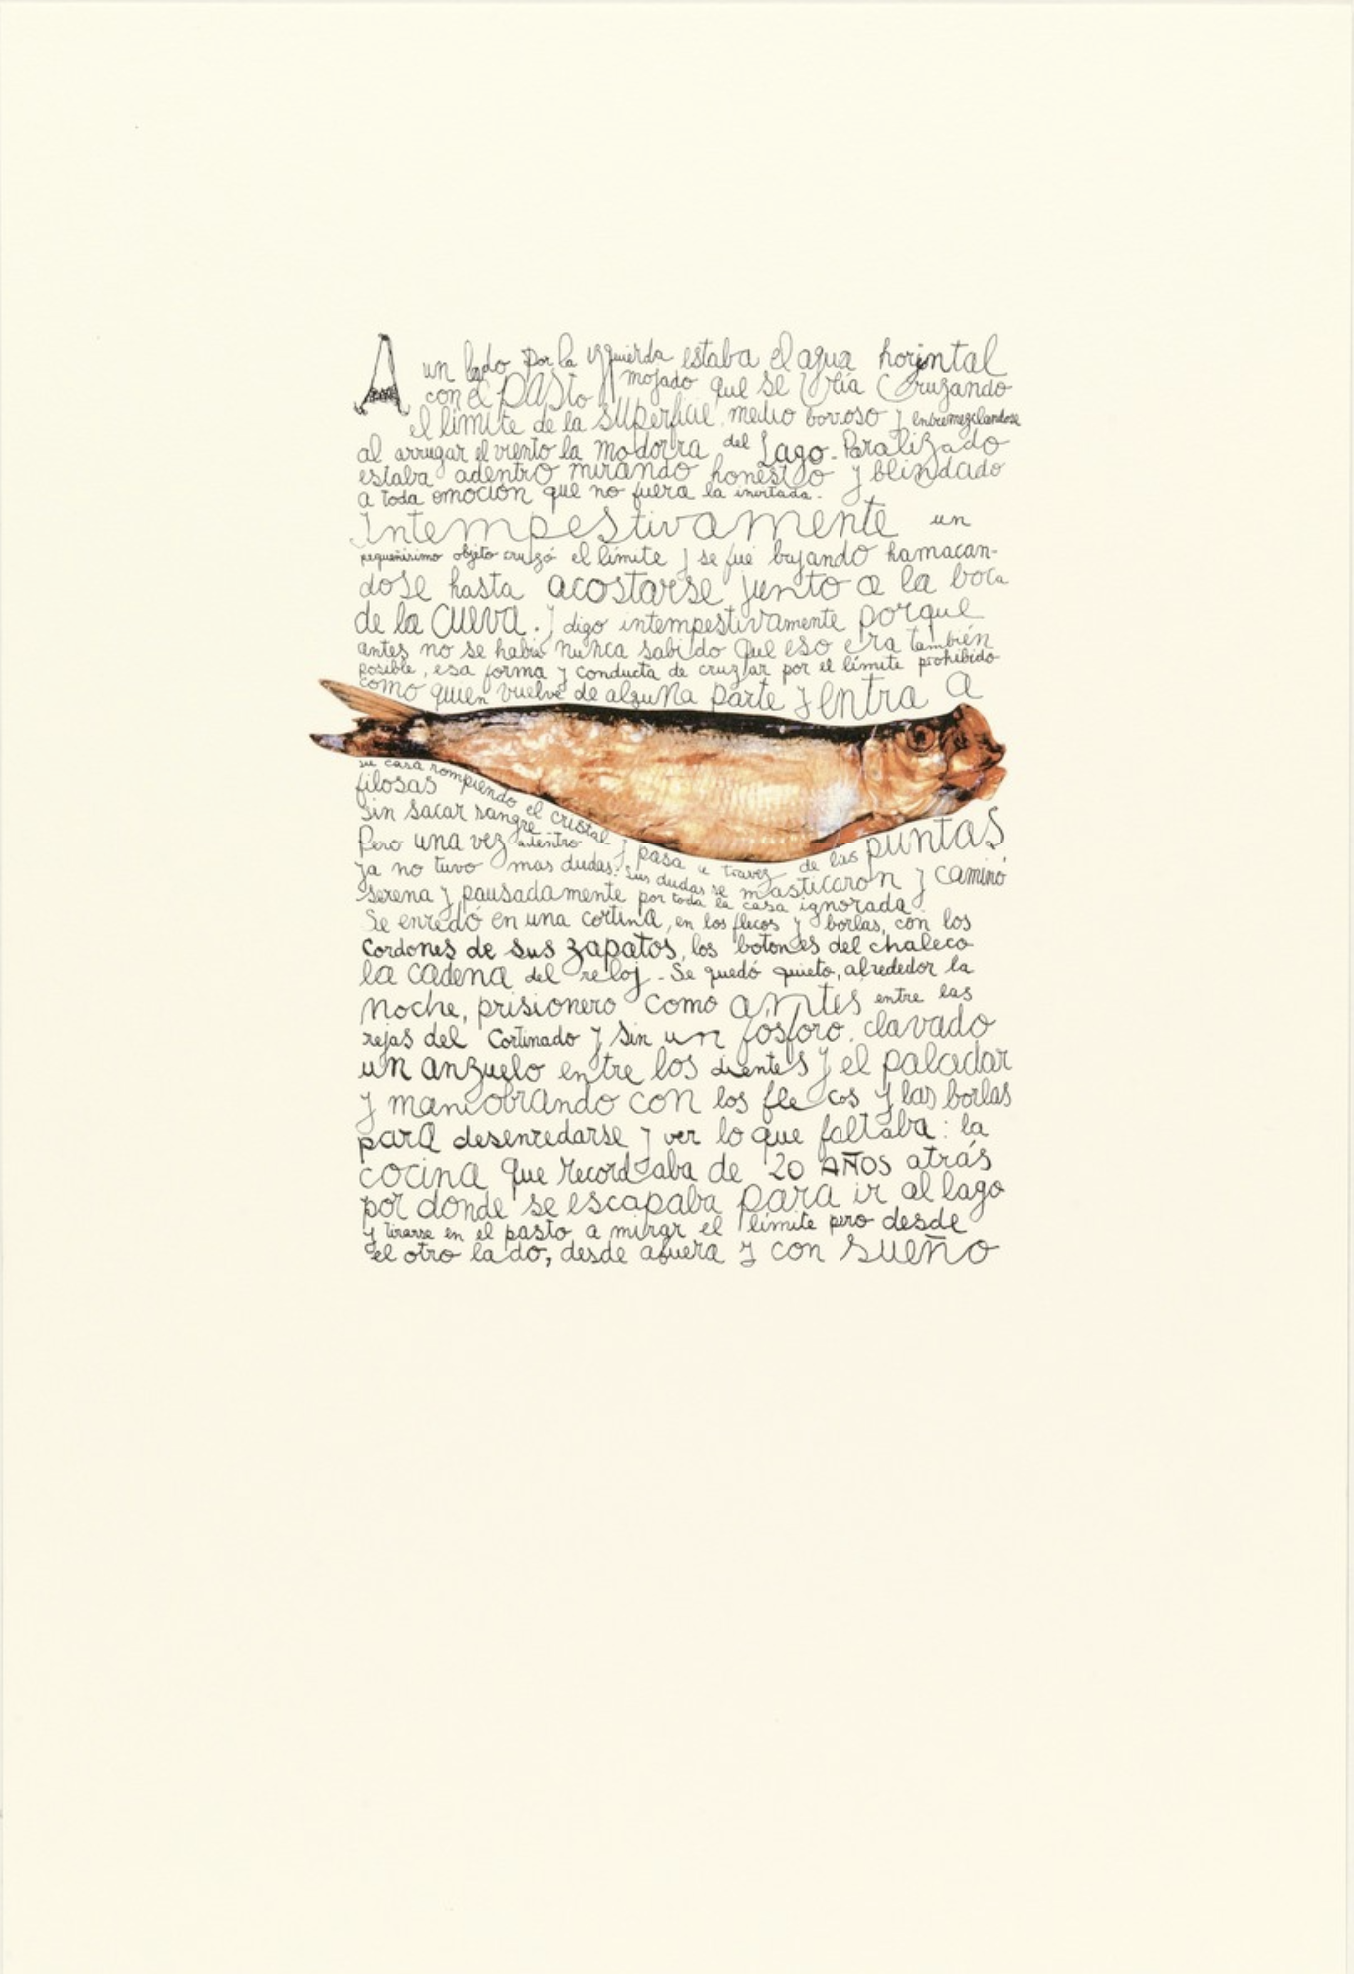 A un lado por la izquierda estaba el agua horizntal
con el pasto mojado que se veía cruzando
el límite de la superficie medio borroso y entremezclandose
al arrugar el viento la modorra del Lago. Paralizado
estaba adentro mirando honesto y blindado
a toda emoción que no fuera la invitada.
Intempestivamente un
pequeñisimo objeto cruzó el límite y se fue bajando hamacan-
dose hasta acostarse junto a la boca
de la cueva. Y digo intempestivamente porque
antes no se habia nunca sabido que eso era también
posible, esa forma y conducta de cruzar por el límite prohibido
como quien vuelve de alguna parte y entra a
su casa rompiendo el cristal y pasa a travez de las puntas
filosas
sin sacar sangre
Pero una vez adentro
ya no tuvo mas dudas. Sus dudas se masticaron y caminó
serena y pausadamente por toda la casa ignorada.
Se enredó en una cortina, en los flecos y borlas, con los
cordones de sus zapatos, los botones del chaleco
la cadena del reloj. Se quedó quieto, alrededor la
noche, prisionero como antes entre las
rejas del cortinado y sin un fósforo, clavado
un anzuelo entre los dientes y el paladar
y maniobrando con los flecos y las borlas
para desenredarse y ver lo que faltaba: la
cocina que recordaba de 20 AÑOS atrás
por donde se escapaba para ir al lago
y tirarse en el pasto a mirar el límite pero desde
el otro lado, desde afuera y con sueño